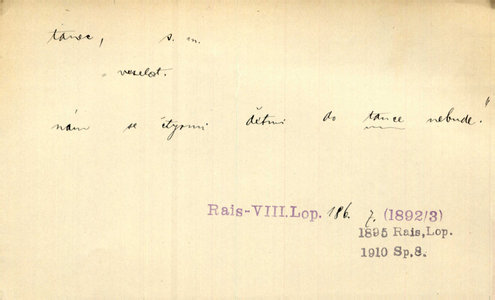 tanec, s. m.
veselost.
nám se čtyřmi dětmi do tance nebude."
Rais-VIII.Lop. 186. 7. (1892/3)
1895 Rais,Lop.
1910 Sp.8.